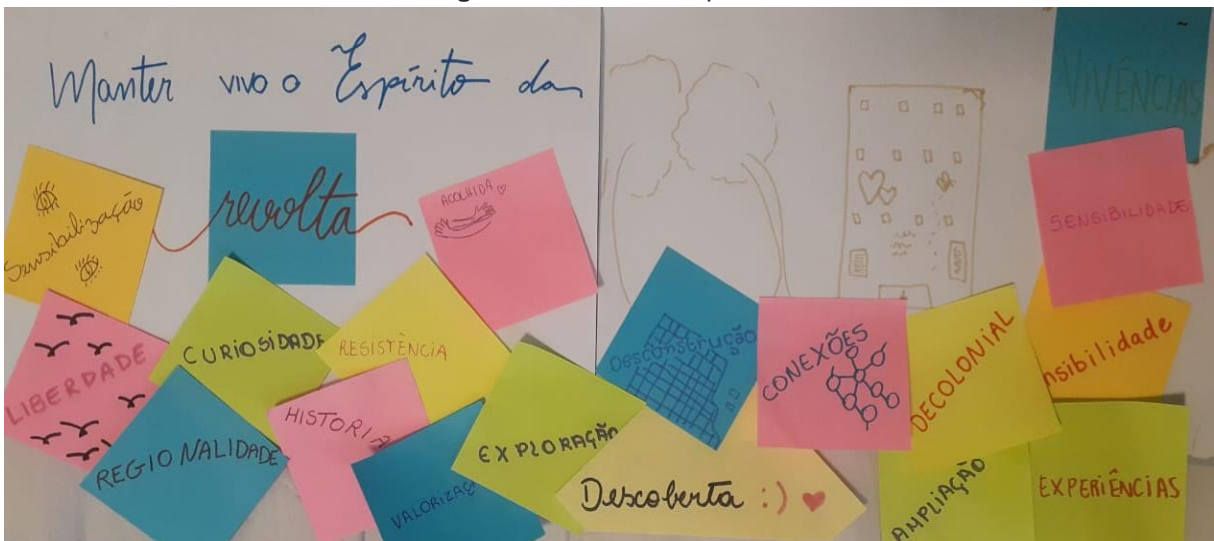 Manter vivo o Espírito da
revolta
VIVÊNCIAS
Sensibilização
ACOLHIDA
SENSIBILIDADE
LIBERDADE
CURIOSIDADE
RESISTÊNCIA
Desconstrução
CONEXÕES
DECOLONIAL
nsibilidade
REGIONALIDADE
HISTORIA
VALORIZAÇ
EXPLORAÇÃO
Descoberta :)
AMPLIAÇÃO
EXPERIÊNCIAS